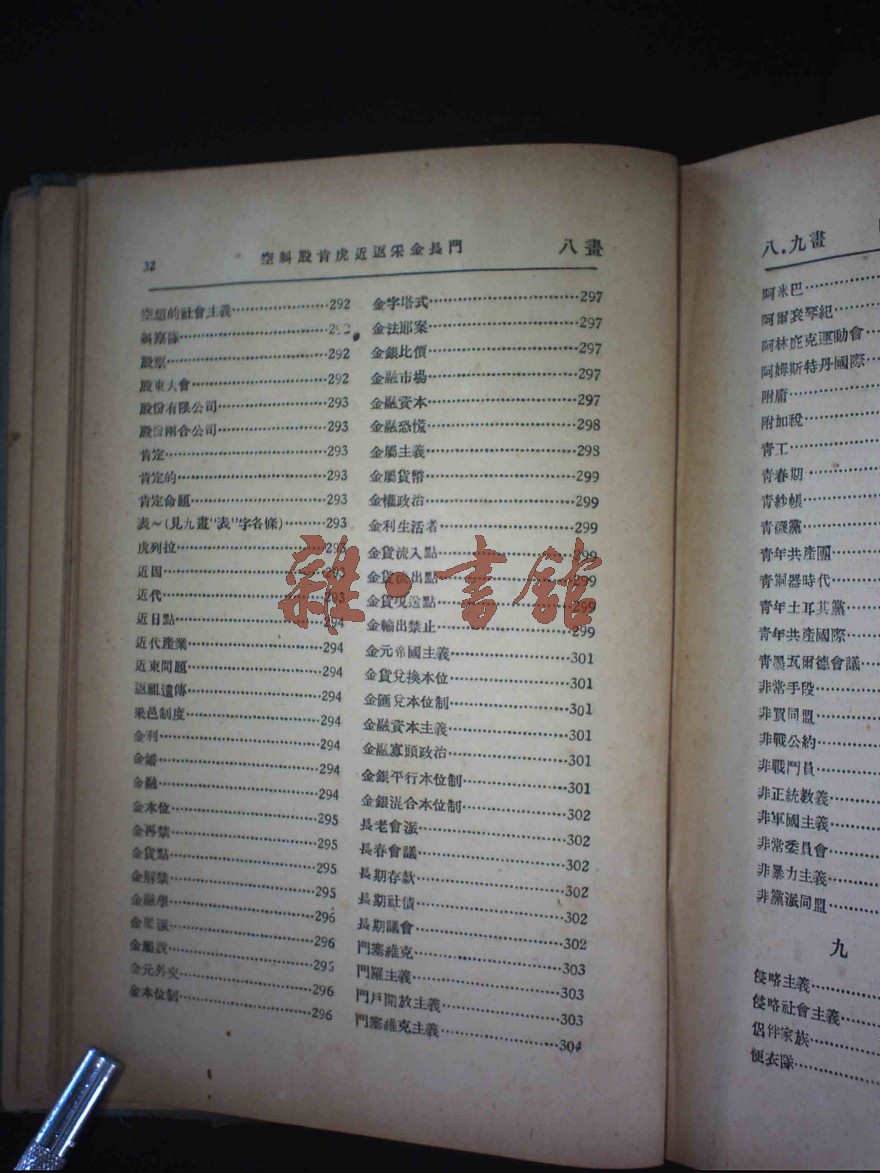 32
空糾股肯虎近返采金長門
八畫
空想的社會主義 292
糾察隊
股票 292
股東大會 292
股份有限公司 293
股份兩合公司 293
肯定 293
肯定的 293
肯定命題 293
表~(見九畫"表"字各條) 293
虎列拉 293
近因 293
近代 293
近日點 294
近代產業 294
近東問題 294
返祖遺傳 294
采邑制度 294
金利 294
金婚 294
金融 294
金本位 295
金再禁 295
金貨點 295
金解禁 295
金融學 296
金 派 296
金屬說 295
金元外交 296
金本位制 296
金字塔式 297
金法郎案 297
金銀比價 297
金融市場 297
金融資本 297
金融恐慌 298
金屬主義 298
金屬貨幣 299
金權政治 299
金利生活者 299
金貨流入點 299
金貨流出點 299
金貨現送點 299
金輸出禁止 299
金元帝國主義 301
金貨兌換本位 301
金匯兌本位制 301
金融資本主義 301
金融寡頭政治 301
金銀平行本位制 301
金銀混合本位制 302
長老會派 302
長春會議 302
長期存款 302
長期社債 302
長期議會 302
門塞維克 303
門羅主義 303
門戶開放主義 303
門塞維克主義 304
八.九畫
阿米巴
阿爾袞琴紀
阿林庇克運動會
阿姆斯特丹國際
附庸
附加稅
青工
青春期
青紗帳
青瓢黨
青年共產團
青洞器時代
青年土耳其黨
青年共產國際
青墨瓦爾德會議
非常手段
非買同盟
非戰公約
非戰鬥員
非正統教義
非軍國主義
非常委員會
非暴力主義
非黨派同盟
九
侵略主義
侵略社會主義
侶伴家族
便衣隊
雜·書館